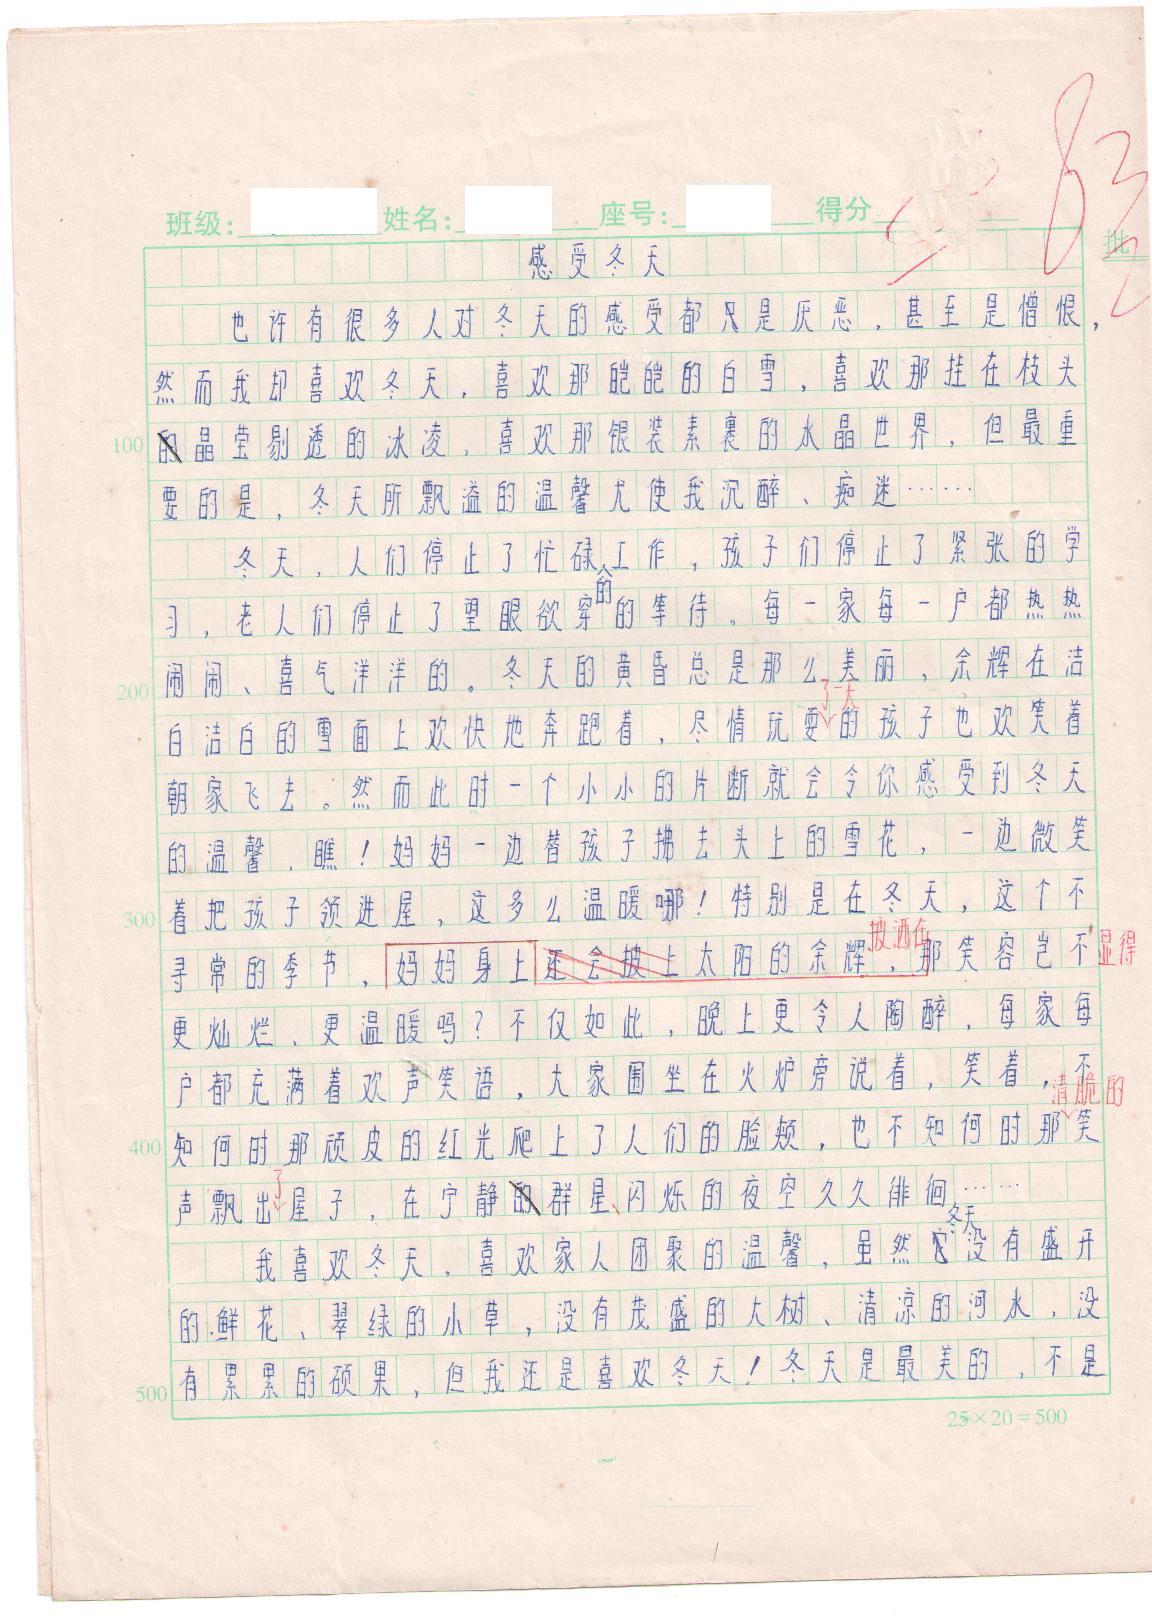 班级： 姓名： 座号： 得分
批
感受冬天
也许有很多人对冬天的感受都只是厌恶，甚至是憎恨，
然而我却喜欢冬天，喜欢那皑皑的白雪，喜欢那挂在枝头
100
的晶莹剔透的冰凌，喜欢那银装素裹的水晶世界，但最重
要的是，冬天所飘溢的温馨尤使我沉醉、痴迷……
冬天，人们停止了忙碌的工作，孩子们停止了紧张的学
习，老人们停止了望眼欲穿的等待。每一家每一户都热热
闹闹、喜气洋洋的。冬天的黄昏总是那么美丽，余辉在洁
200
了一天
白洁白的雪面上欢快地奔跑着，尽情玩耍的孩子也欢笑着
朝家飞去。然而此时一个小小的片断就会令你感受到冬天
的温馨，瞧！妈妈一边替孩子拂去头上的雪花，一边微笑
着把孩子领进屋，这多么温暖哪！特别是在冬天，这个不
300
披洒在
寻常的季节，妈妈身上还会披上太阳的余辉，那笑容岂不显得
更灿烂、更温暖吗？不仅如此，晚上更令人陶醉，每家每
户都充满着欢声笑语，大家围坐在火炉旁说着，笑着，不
清脆的
400
知何时那顽皮的红光爬上了人们的脸颊，也不知何时那笑
了
声飘出屋子，在宁静的群星闪烁的夜空久久徘徊……
冬天
我喜欢冬天，喜欢家人团聚的温馨，虽然它没有盛开
的鲜花、翠绿的小草，没有茂盛的大树、清凉的河水，没
500
有累累的硕果，但我还是喜欢冬天！冬天是最美的，不是
25×20=500